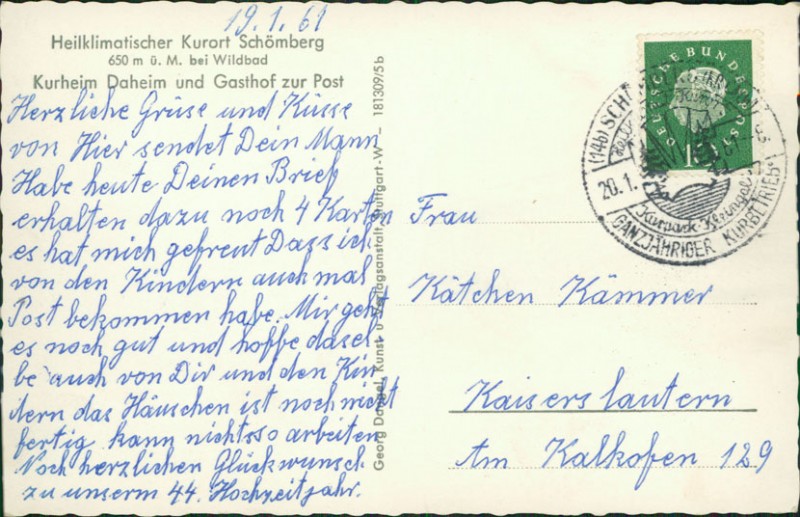 19.1.61
Heilklimatischer Kurort Schömberg
650 m ü. M. bei Wildbad
Kurheim Daheim und Gasthof zur Post
Herzliche Grüse und Küsse
von Hier sendet Dein Mann
Habe heute Deinen Brief
erhalten dazu noch 4 Karten
es hat mich gefreut Dass ich
von den Kindern auch mal
Post bekommen habe. Mir geht
es noch gut und hoffe dasel
be auch von Dir und den Kin
dern das Häuschen ist noch nicht
fertig kann nichts so arbeiten
Noch herzlichen Glückwunsch
zu unserm 44. Hochzeitjahr.
Georg Kunst- u. Verlagsanstalt, Stuttgart-W – 181309/5b
DEUTSCHE BUNDESPOST
(14b) SCH
20.1.
Kurpark
GANZJÄHRIGER KURBETRIEB
Frau
Kätchen Kämmer
Kaiserslautern
Am Kalkofen 129